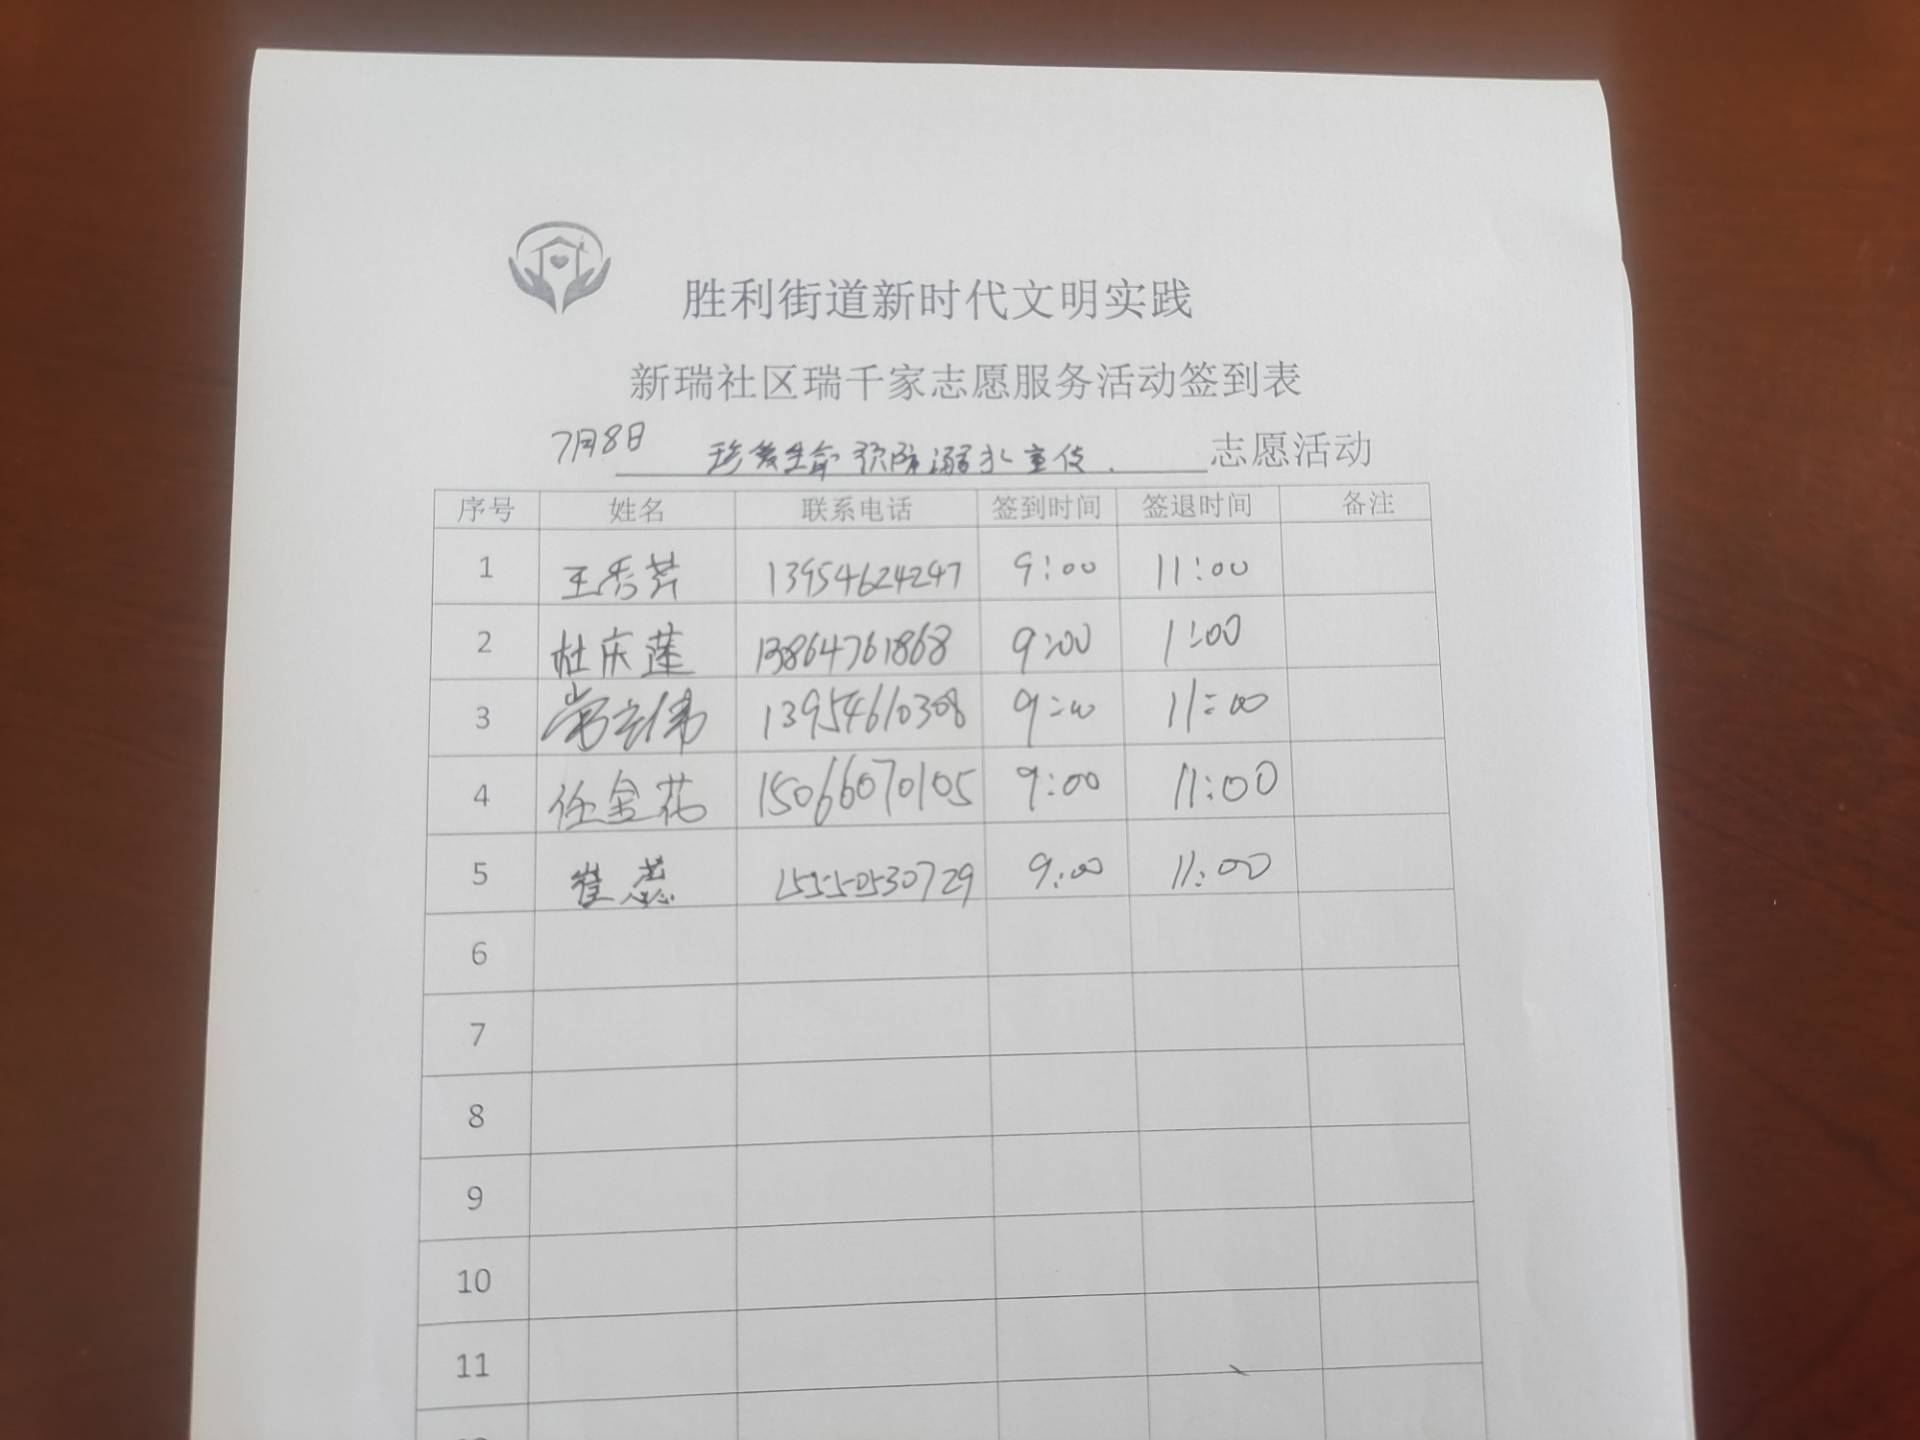 胜利街道新时代文明实践
新瑞社区瑞千家志愿服务活动签到表
7月8日 珍爱生命 预防溺水宣传. 志愿活动
序号 姓名 联系电话 签到时间 签退时间 备注
1 王秀芹 13954624247 9:00 11:00
2 杜庆莲 13864761868 9:00 1:00
3 常立伟 13954610308 9:00 11:00
4 任金花 15066070105 9:00 11:00
5 崔蕊 15550530729 9:00 11:00
6
7
8
9
10
11